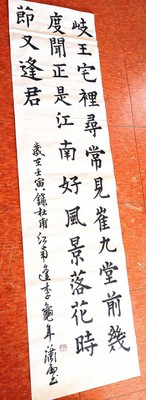 岐王宅裡尋常見崔九堂前幾
度聞正是江南好風景落花時
節又逢君
歲在壬寅錄杜甫江南逢李龜年